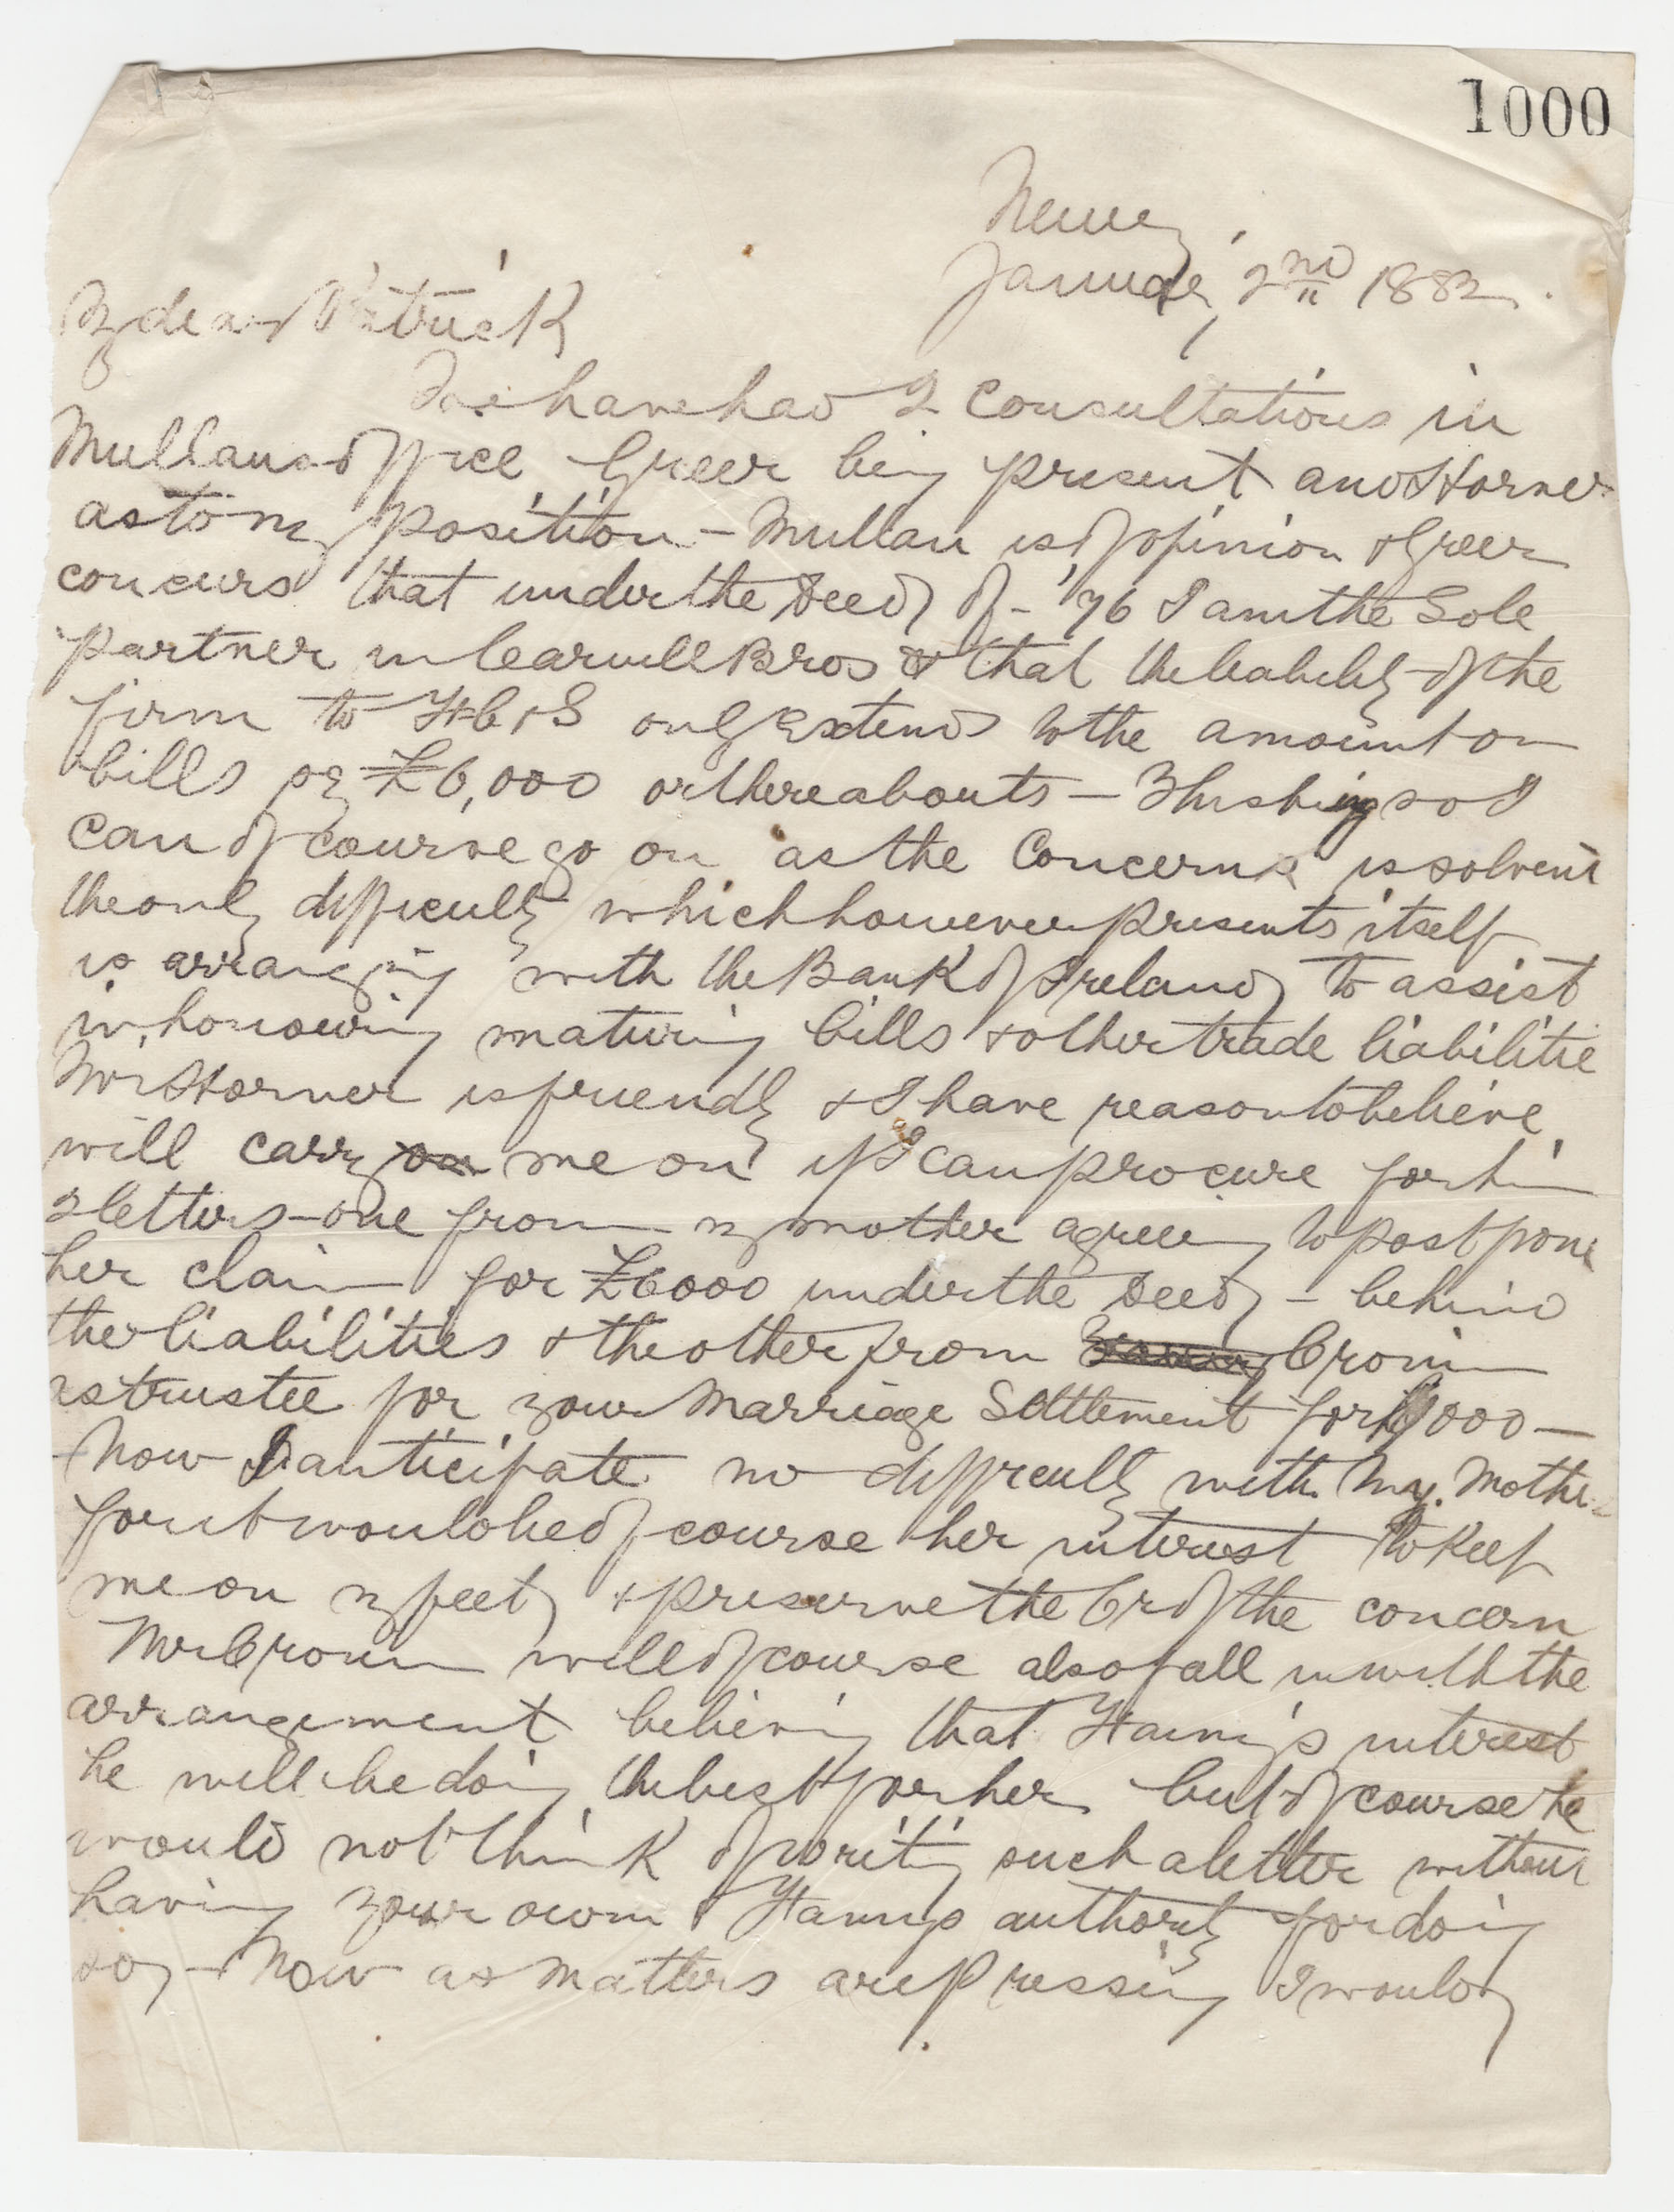 1000
Newry,
January, 2nd 1882.
My dear Patrick
We have had 2 Consultations in
Mullans office Greer being present and Horner
as to my position - Mullan is of opinion & Greer
concurs that under the Deed of - '76 I am the Sole
partner in Carvill Bros & that the liability of the
firm to FC & S only extends to the amount on
bills say £6,000 or thereabouts - This being so I
can of course go on as the Concern is solvent
the only difficulty which however presents itself
is arranging with the Bank of Ireland to assist
in honouring maturing bills & other trade liabilitie
Mr Horner is friendly & I have reason to believe
will carry on me on if I can procure for him
2 letters - one from my mother agreeing to postpone
her claim for £6000 under the Deed - behind
the liabilities & the other from Cronin
as trustee for your Marriage Settlement for 000 -
- Now I anticipate no difficulty with My. Mother
for it would be of course her interest to keep
me on my feet, & preserve the Cr of the concern
Mr Cronin will of course also fall in with the
arrangement believing that Fanny's interest
he will be doing the best for her but of course he
would not think of writing such a letter without
having your own & Fannys authority for doing
so, - Now as matters are pressing I would,